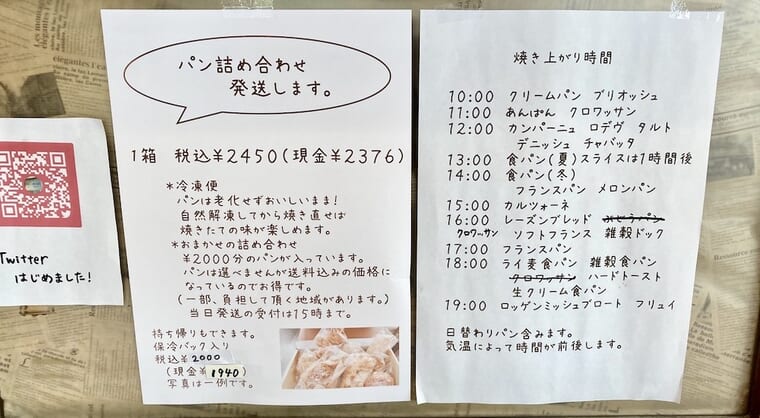 Twitter
はじめました!
パン詰め合わせ
発送します。
1箱 税込¥2450(現金¥2376)
*冷凍便
パンは老化せずおいしいまま!
自然解凍してから焼き直せば
焼きたての味が楽しめます。
*おまかせの詰め合わせ
¥2000分のパンが入っています。
パンは選べませんが送料込みの価格に
なっているのでお得です。
(一部、負担して頂く地域があります。)
当日発送の受付は15時まで。
持ち帰りもできます。
保冷パック入り
税込¥2000
(現金¥1940)
写真は一例です。
焼き上がり時間
10:00 クリームパン ブリオッシュ
11:00 あんぱん クロワッサン
12:00 カンパーニュ ロデヴ タルト
デニッシュ チャバッタ
13:00 食パン(夏)スライスは1時間後
14:00 食パン(冬)
フランスパン メロンパン
15:00 カルツォーネ
16:00 レーズンブレッド ぶどうパン
クロワッサン ソフトフランス 雑穀ドック
17:00 フランスパン
18:00 ライ麦食パン 雑穀食パン
クロワッサン ハードトースト
生クリーム食パン
19:00 ロッゲンミッシュブロート フリュイ
日替わりパン含みます。
気温によって時間が前後します。